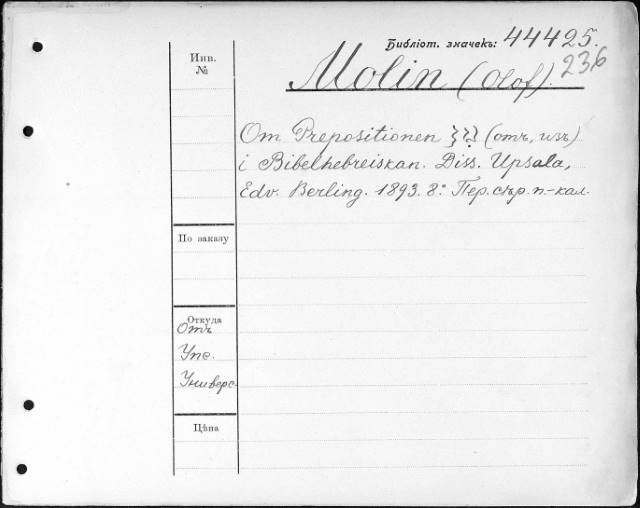 Библіот. значекъ: 44425.
236
Инв.
№
Molin (Olof).
Om Prepositionen (отъ, изъ)
i Bibelhebreiskan. Diss. Upsala,
Edv. Berling. 1893. 8º Пер. сѣр. п.-кал.
По заказу
Откуда
Отъ
Упс.
Универс.
Цѣна